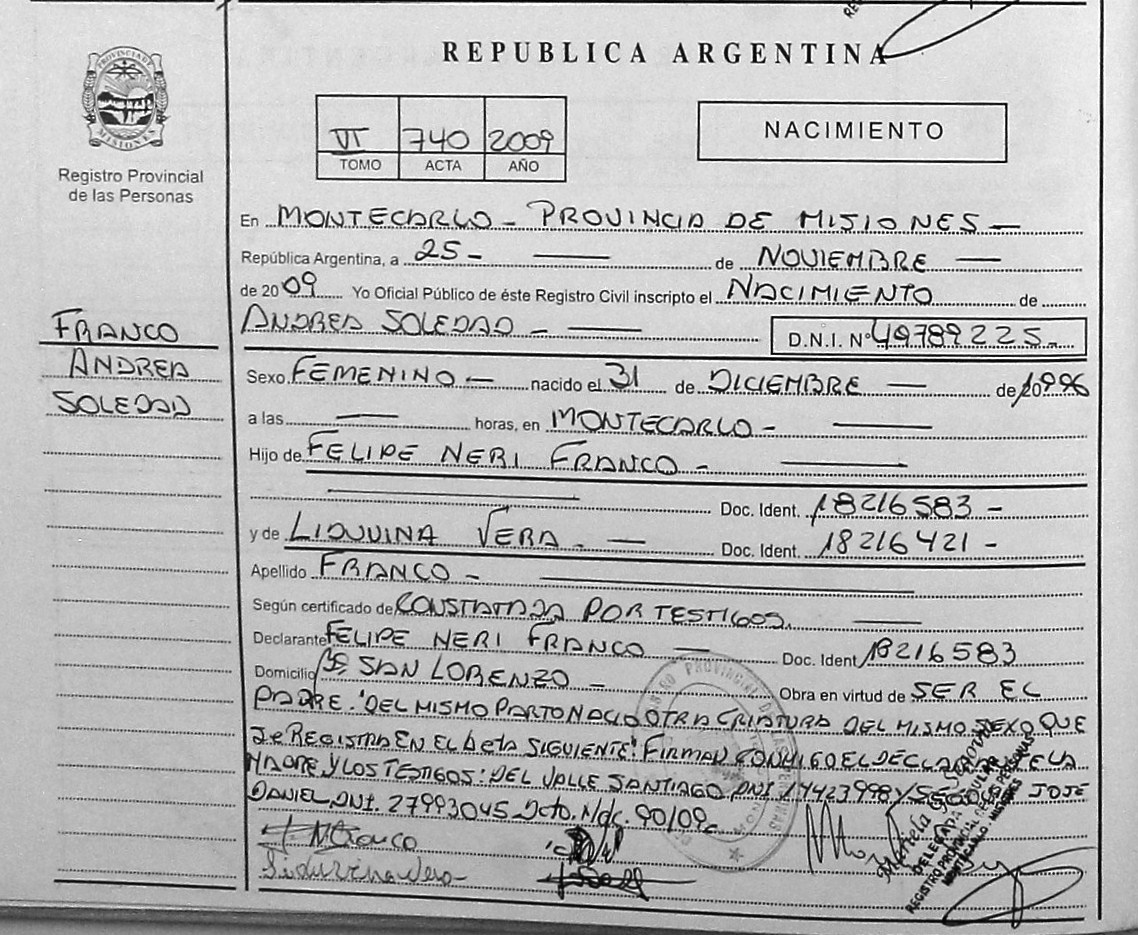 REPUBLICA ARGENTINA
PROVINCIA DE
MISIONES
Registro Provincial
de las Personas
VI 740 2009
TOMO ACTA AÑO
NACIMIENTO
En MONTECARLO - PROVINCIA DE MISIONES -
República Argentina, a 25 - de NOVIEMBRE
de 2009 Yo Oficial Público de éste Registro Civil inscripto el NACIMIENTO de
FRANCO
ANDREA
SOLEDAD
ANDREA SOLEDAD - D.N.I. Nº 49789225-
Sexo FEMENINO - nacido el 31 de DICIEMBRE de 1996
a las horas, en MONTECARLO -
Hijo de FELIPE NERI FRANCO -
Doc. Ident. 18216583 -
y de LIDUVINA VERA - Doc. Ident. 18216421 -
Apellido FRANCO -
Según certificado de CONSTATADA POR TESTIGOS.
Declarante FELIPE NERI FRANCO Doc. Ident 18216583
Domicilio Bº SAN LORENZO - Obra en virtud de SER EL
PADRE. "DEL MISMO PARTO NACIO OTRA CRIATURA DEL MISMO SEXO QUE
Se REGISTRA EN EL acta SIGUIENTE". FIRMAN CONMIGO EL DECLARANTE LA
MADRE Y LOS TESTIGOS: DEL VALLE SANTIAGO DNI 14423998 Y JOSE
DANIEL DNI. 27993045 Dcto. N/dc. 90/09
Franco
Liduvina Vera
Mariela
DELEGADA TITULAR
REGISTRO PROVINCIAL DE LAS PERSONAS
MONTECARLO - MISIONES